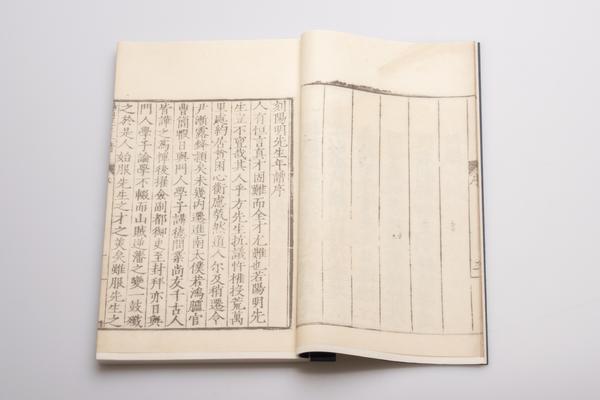 刻陽明先生年譜序
人有恒言真才固難而全才尤難也若陽明先
生豈不亶哉其人乎方先生抗議忤權投荒萬
里處約居貧困心衡慮煢然道人尔及稍遷令
尹漸露鋒頴矣未幾內遷進南太僕若鴻臚官
曹簡暇日與門人學子講德問業尚友千古人
皆譁之爲禪後擢僉副都御史至封拜亦日與
門人學子論學不輟而山賊逆藩之變一鼓殲
之於是人始服先生之才之美矣雖服先生之